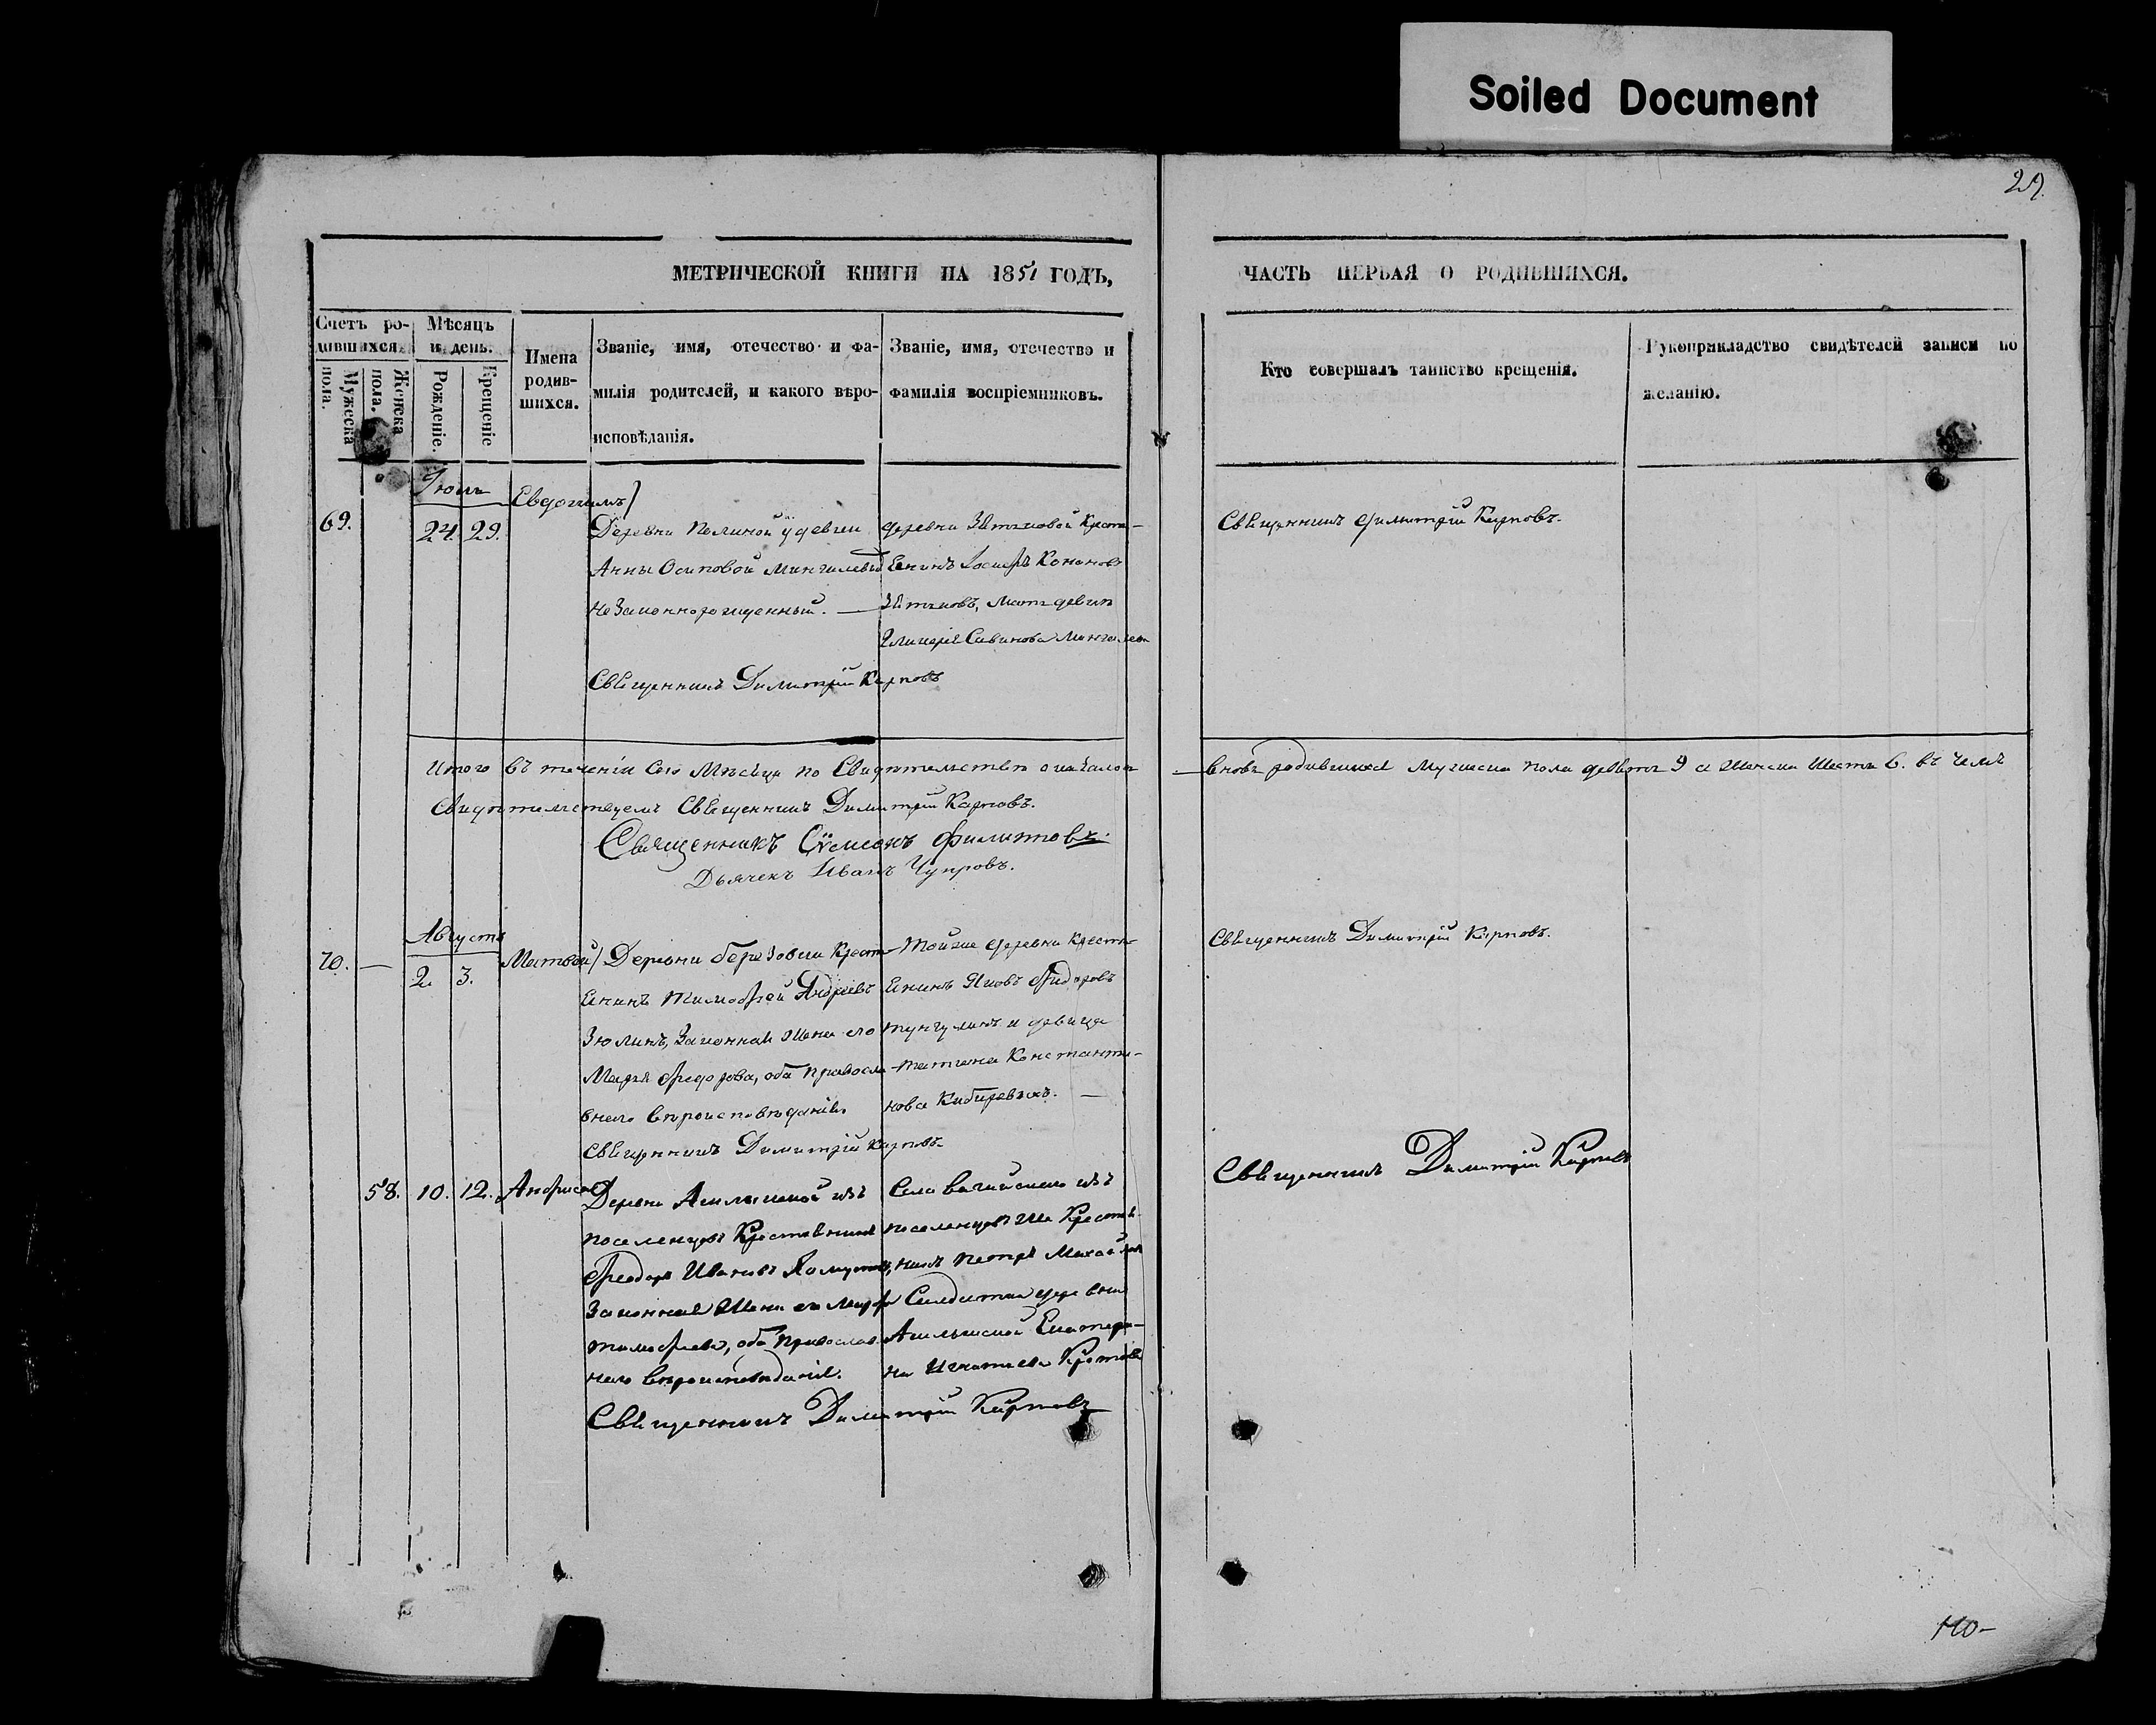 Soiled Document
29.
МЕТРИЧЕСКОЙ КНИГИ НА 1851 ГОДЪ,
ЧАСТЬ ПЕРВАЯ О РОДИВШИХСЯ.
Счетъ ро-
дившихся.
Мужеска
пола.
Женска
пола.
Мѣсяцъ
и день.
Рожденіе.
Крещеніе
Имена
родив-
шихся.
Званіе, имя, отечество и фа-
милія родителей, и какого вѣро-
исповѣданія.
Званіе, имя, отечество и
фамилія воспріемниковъ.
Кто совершалъ таинство крещенія.
Рукоприкладство свидѣтелей записи по
желанію.
Іюль
69.
24. 29.
Евдокимъ
Деревни удевки
Анны Осиповой
незаконнорожденный. —
Священникъ Димитрій Карповъ
деревни Зятьковой Кресть-
янинъ Іосифъ Кононовъ
Зятьковъ,
Савинова
Священникъ Димитрій Карповъ.
Итого въ теченіи сего Мѣсяца по Свидѣтельству оказалось
вновь родившихся мужеска пола девять 9 а женска шесть 6. въ чемъ
Свидѣтельствуемъ Священникъ Димитрій Карповъ.
Священникъ Сѵмеонъ Филитовъ.
Дьячекъ Иванъ Чупровъ.
Августъ
70. —
2. 3.
Матвей
Деревни березовки Кресть-
янинъ Тимофей Андреевъ
Зюлинъ, Законная жена его
Марья Федорова, оба правосла-
внаго вѣроисповѣданія
Священникъ Димитрій Карповъ.
Тойже деревни Кресть-
янинъ Яковъ Федоровъ
тунгулинъ и девица
татьяна Константи-
нова Кибиревыхъ. —
Священникъ Димитрій Карповъ.
58. 10. 12.
Анфиса
Деревни изъ
поселенцевъ Крестьянинъ
Феодоръ Ивановъ
Законная жена его Марфа
тимофеева, оба православ-
наго вѣроисповѣданія.
Священникъ Димитрій Карповъ
Села изъ
поселенцевъ же Крестья-
нинъ Петръ Михайловъ
деревни
Екатери-
на Игнатьева Кротова
Священникъ Димитрій Карповъ